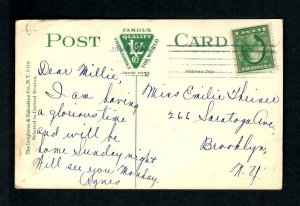 6-
POST CARD
FAMOUS QUALITY
Address Only
Dear Millie,
I am having
a glorious time
and will be
home Sunday night
Will see you Monday.
Agnes
Miss Emilie Theiner
266 Saratoga Ave.
Brooklyn,
N.Y.
The Leighton & Valentine Co., N.Y. City.